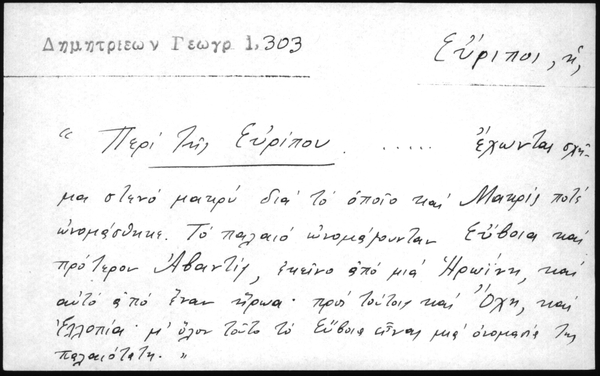 Δημητριεων Γεωγρ 1,303
Εὔριποι, ἡ,
“ Περί τῆς Εὐρίπου ..... ἔχωντας σχῆ-
μα στενό μακρύ διά τό ὁποῖο καί Μακρίς ποτέ
ὠνομάσθηκε. Τό παλαιό ὠνομάζουνταν Εὔβοια καί
πρότερον Ἀβαντίς, ἐκεῖνο ἀπό μιά Ἡρωίνη, καί
αὐτό ἀπό ἕναν ἥρωα· πρός τούτοις καί Ὄχη, καί
Ἐλλοπία· μ' ὅλον τοῦτο τό Εὔβοια εἶναι μιά ὀνομασία της
παλαιότατη. „